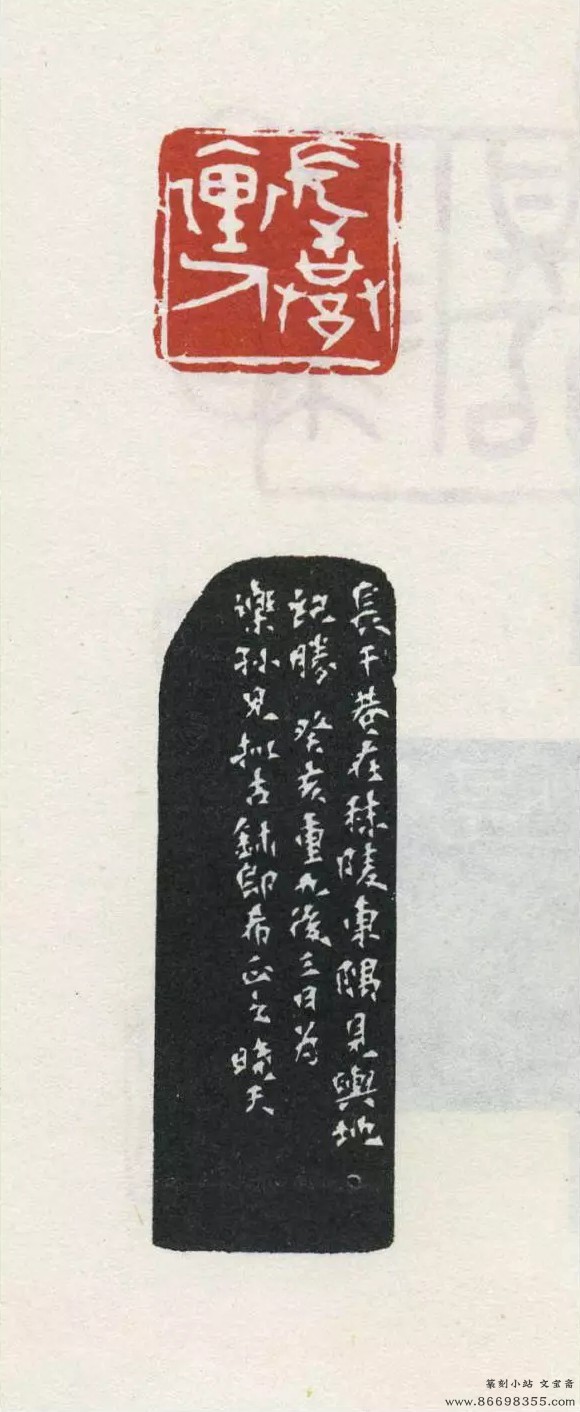 長干巷
長干巷在秣陵東隅見輿地。
記勝 癸亥重九後三日為
樂孫兄擬古鉨即希正之 曉天
篆刻小站 文宝斋
www.86698355.com